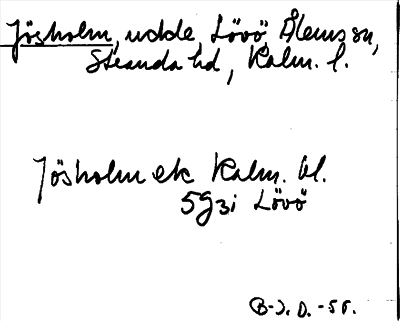 Jösholm, udde Lövö, Ålems sn,
Stranda hd, Kalm. l.
Jösholm ek Kalm. bl.
5g3i Lövö
B-J. D. -55.